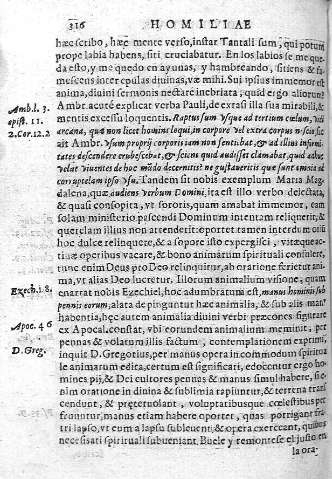 316 HOMILIAE
hæc scribo, hæc mente verso, instar Tantali sum, qui potum
prope labia habens, siti cruciabatur. En los labios se me que
da esto, y me quedo en ayunas, y hambreando, sitiens & fa
mescens inter epulas diuinas, væ mihi. Sui ipsius immemor est
anima, diuini sermonis nectare inebriata; quid ergo aliorum?
Amb.l. 3.
epist. 11.
Ambr. acutè explicat verba Pauli, de extasi illa sua mirabili, &
mentis excessu loquentis. Raptus sum vsque ad tertium cœlum, vidi
2.Cor.12.2
arcana, quæ non licet homini loqui, in corpore vel extra corpus nescio: sic
ait Ambr. Vsum proprij corporis iam non sentibat, & ad illius infirmi-
tates descendere erubescebat, & sciens quid audisset clamabat, quid adhuc
velut viuentes de hoc mūdo decernitis? ne gustaueritis quæ sunt omnia ad
corruptelam ipso vsu. Tandem sit nobis exemplum Maria Mag
dalena, quæ audiens verbum Domini, ita est illo verbo delectata,
& quasi consopita, vt sororis, quam amabat immemor, eam
solam ministerio pascendi Dominum intentam reliquerit, &
querelam illius non attenderit: oportet tamen interdum otiū
hoc dulce relinquere, & a sopore isto expergisci, vitæq; acti-
uæ operibus vacare, & bono animarum spirituali consulere,
tunc enim Deus pro Deo relinquitur, ab oratione ferietur ani
ma, vt alias Deo lucretur. Illorum animalium visione, quam
Ezech.1.8.
enarrat nobis Ezechiel, hoc adumbratum est, manus hominis sub
pennis eorum, alata depinguntur hæc animalia, & sub alis man9
habentia, hęc autem animalia diuini verbi præcones signare
Apoc. 4 6
ex Apocal. constat, vbi eorundem animalium meminit, per
pennas & volatum illis factum, contemplationem exprimi,
D. Greg.
inquit D. Gregorius, per manus opera in commodum spiritua
le animarum edita, certum est significari, edocentur ergo ho-
mines pij, & Dei cultores pennas & manus simul habere, si e-
nim oratione in diuina & sublimia rapiuntur, & terrena trans
cendunt, & prætervolant, voluptatibusque cœlestibus per
fruuntur, manus etiam habere oportet, quas porrigant fra-
tri lapso, vt cum a lapsu subleuent, & opera exerceant, quibus
necessitati spirituali subueniant. Buele y remontese el justo en
la ora-